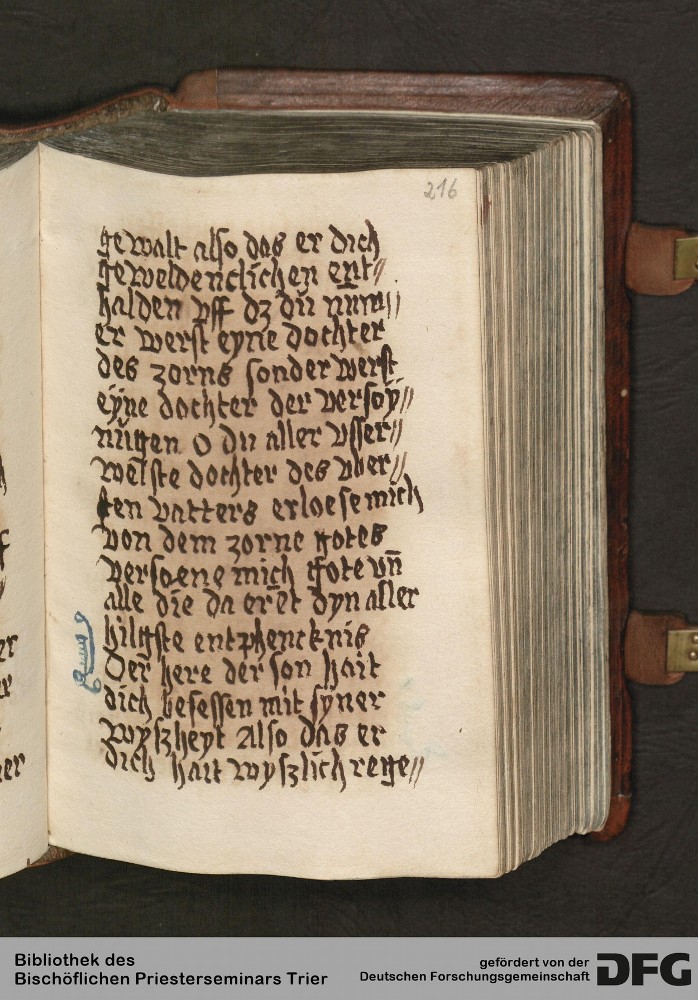 216
gewalt also das er dich
geweldenclichen ent//
halden vff dz du num̄//
er werst eyne dochter
des zorns sonder werst
eÿne dochter der versoÿ//
nūgen O du aller vsser//
welste dochter des vber//
sten vatters erloese mich
von dem zorne gotes
versoene mich gote vn̄
alle die da eret dyn aller
hilgste entphencknis
Der here der son hait
dich besessen mit syner
wyszheyt Also das er
dich hait wyszlich rege//
Bibliothek des
Bischöflichen Priesterseminars Trier
gefördert von der
Deutschen Forschungsgemeinschaft
DFG